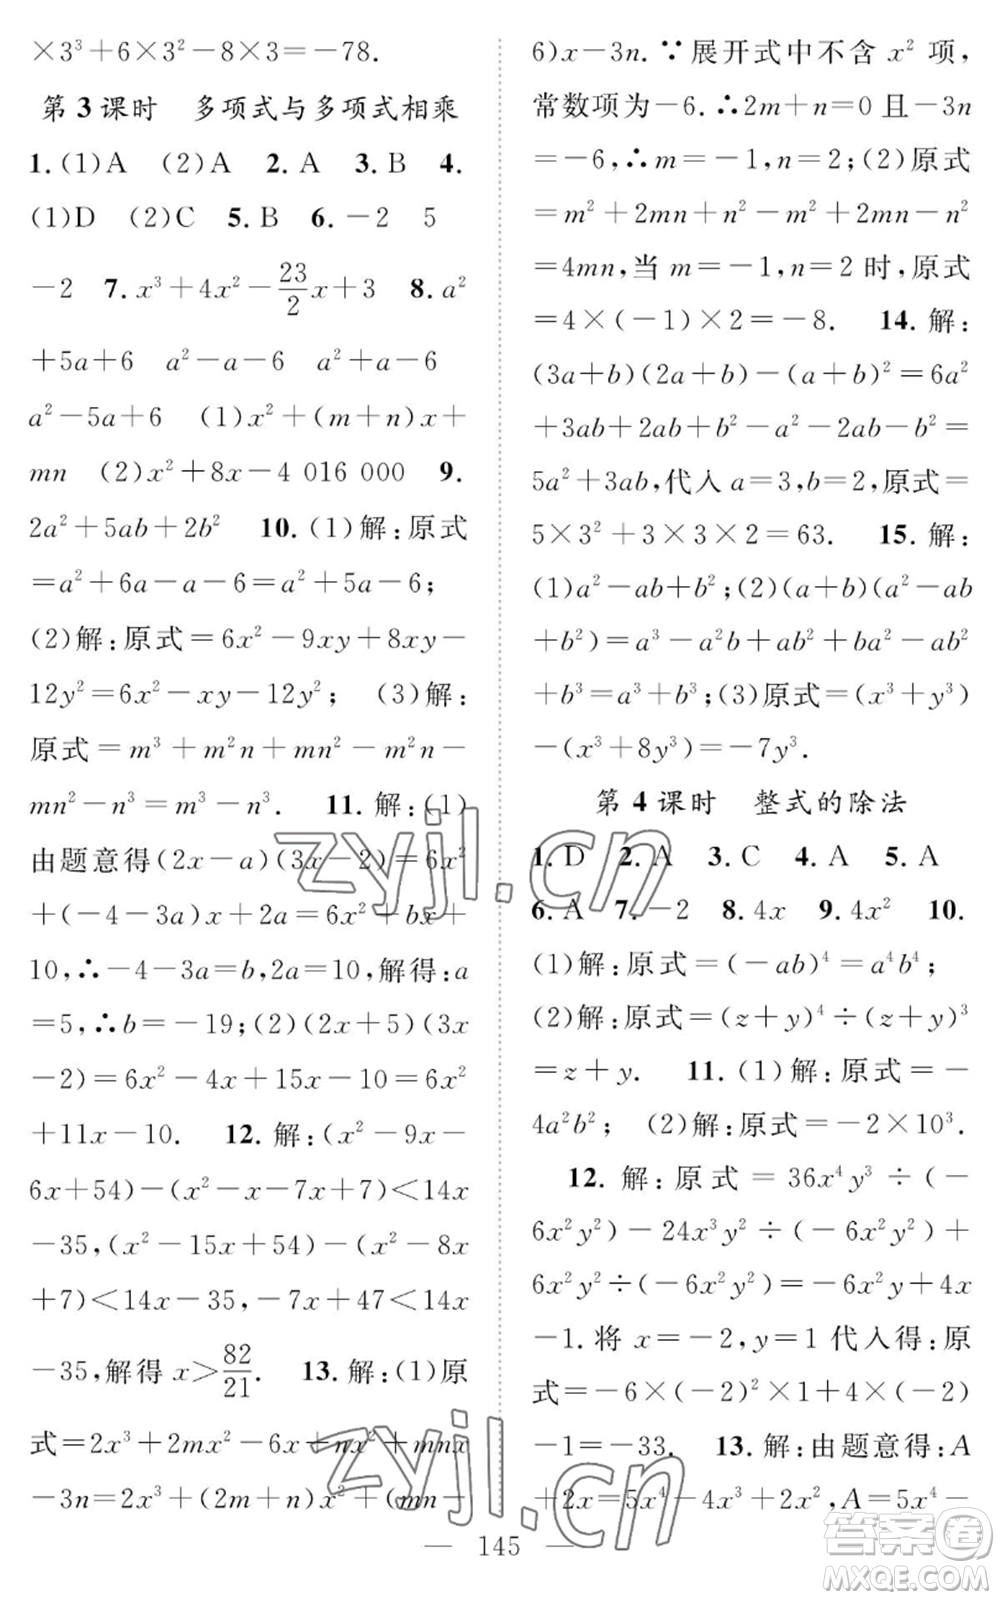 ×3³+6×3²-8×3=-78.
第 3 课时 多项式与多项式相乘
1.(1)A (2)A 2.A 3.B 4.
(1)D (2)C 5.B 6.-2 5
-2 7.x³+4x²-23/2x+3 8.a²
+5a+6 a²-a-6 a²+a-6
a²-5a+6 (1)x²+(m+n)x+
mn (2)x²+8x-4 016 000 9.
2a²+5ab+2b² 10.(1)解:原式
=a²+6a-a-6=a²+5a-6;
(2)解:原式=6x²-9xy+8xy-
12y²=6x²-xy-12y²; (3)解:
原式=m³+m²n+mn²-m²n-
mn²-n³=m³-n³. 11.解:(1)
由题意得(2x-a)(3x-2)=6x²
+(-4-3a)x+2a=6x²+bx+
10,∴-4-3a=b,2a=10,解得:a
=5,∴b=-19;(2)(2x+5)(3x
-2)=6x²-4x+15x-10=6x²
+11x-10. 12.解:(x²-9x-
6x+54)-(x²-x-7x+7)<14x
-35,(x²-15x+54)-(x²-8x
+7)<14x-35,-7x+47<14x
-35,解得 x>82/21. 13.解:(1)原
式=2x³+2mx²-6x+nx²+mnx
-3n=2x³+(2m+n)x²+(mn-
6)x-3n.∵展开式中不含 x² 项,
常数项为-6.∴2m+n=0 且-3n
=-6,∴m=-1,n=2;(2)原式
=m²+2mn+n²-m²+2mn-n²
=4mn,当 m=-1,n=2 时,原式
=4×(-1)×2=-8. 14.解:
(3a+b)(2a+b)-(a+b)²=6a²
+3ab+2ab+b²-a²-2ab-b²=
5a²+3ab,代入 a=3,b=2,原式=
5×3²+3×3×2=63. 15.解:
(1)a²-ab+b²;(2)(a+b)(a²-ab
+b²)=a³-a²b+ab²+ba²-ab²
+b³=a³+b³;(3)原式=(x³+y³)
-(x³+8y³)=-7y³.
第 4 课时 整式的除法
1.D 2.A 3.C 4.A 5.A
6.A 7.-2 8.4x 9.4x² 10.
(1)解:原式=(-ab)⁴=a⁴b⁴;
(2)解:原式=(z+y)⁴÷(z+y)³
=z+y. 11.(1)解:原式=-
4a²b²; (2)解:原式=-2×10³.
12.解:原式=36x⁴y³÷(-
6x²y²)-24x³y²÷(-6x²y²)+
6x²y²÷(-6x²y²)=-6x²y+4x
-1.将 x=-2,y=1 代入得:原
式=-6×(-2)²×1+4×(-2)
-1=-33. 13.解:由题意得:A
+2x=5x⁴-4x³+2x²,A=5x⁴-
— 145 —
zyjl.cn
zyjl.cn
答案圈
MXQE.COM